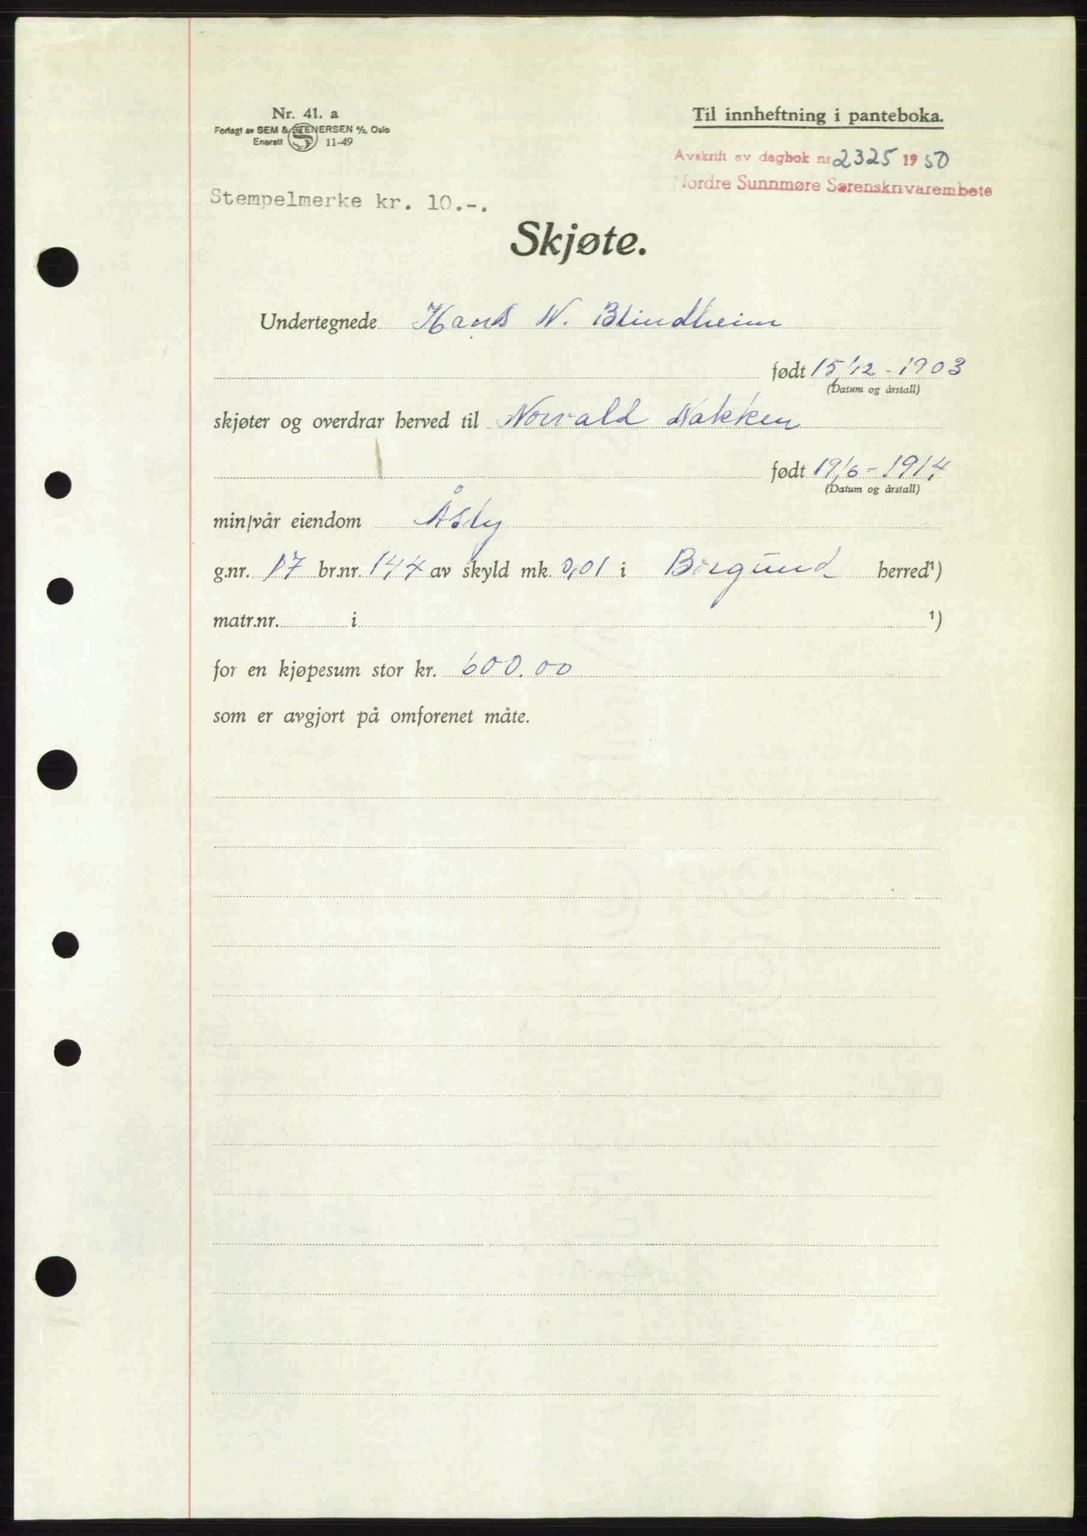 Nr. 41. a
Forlagt av SEM & STENERSEN A/S, Oslo
Enerett 11-49
Til innheftning i panteboka.
Avskrift av dagbok nr 2325 1950
Nordre Sunnmøre Sorenskriverembete
Stempelmerke kr. 10.-.
Skjøte.
Undertegnede Hans N. Blindheim
født 15/12 - 1903
(Datum og årstall)
skjøter og overdrar herved til Norvald Nakken
født 19/6 - 1914
(Datum og årstall)
min/vår eiendom Åsly
g.nr. 17 br.nr. 144 av skyld mk. 0,01 i Borgund herred¹)
matr.nr. i ¹)
for en kjøpesum stor kr. 600.00
som er avgjort på omforenet måte.